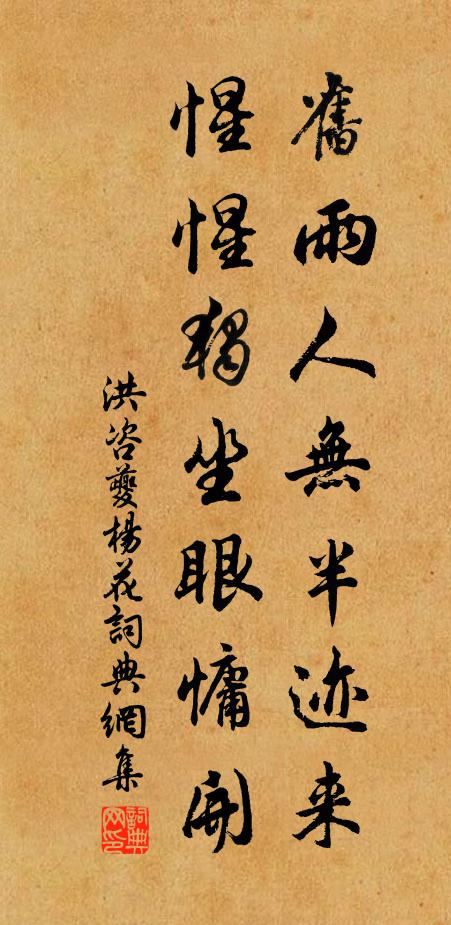 舊雨人無半迹来
惺惺獨坐眼慵開
洪咨夔楊花詞典網集
詞典网印